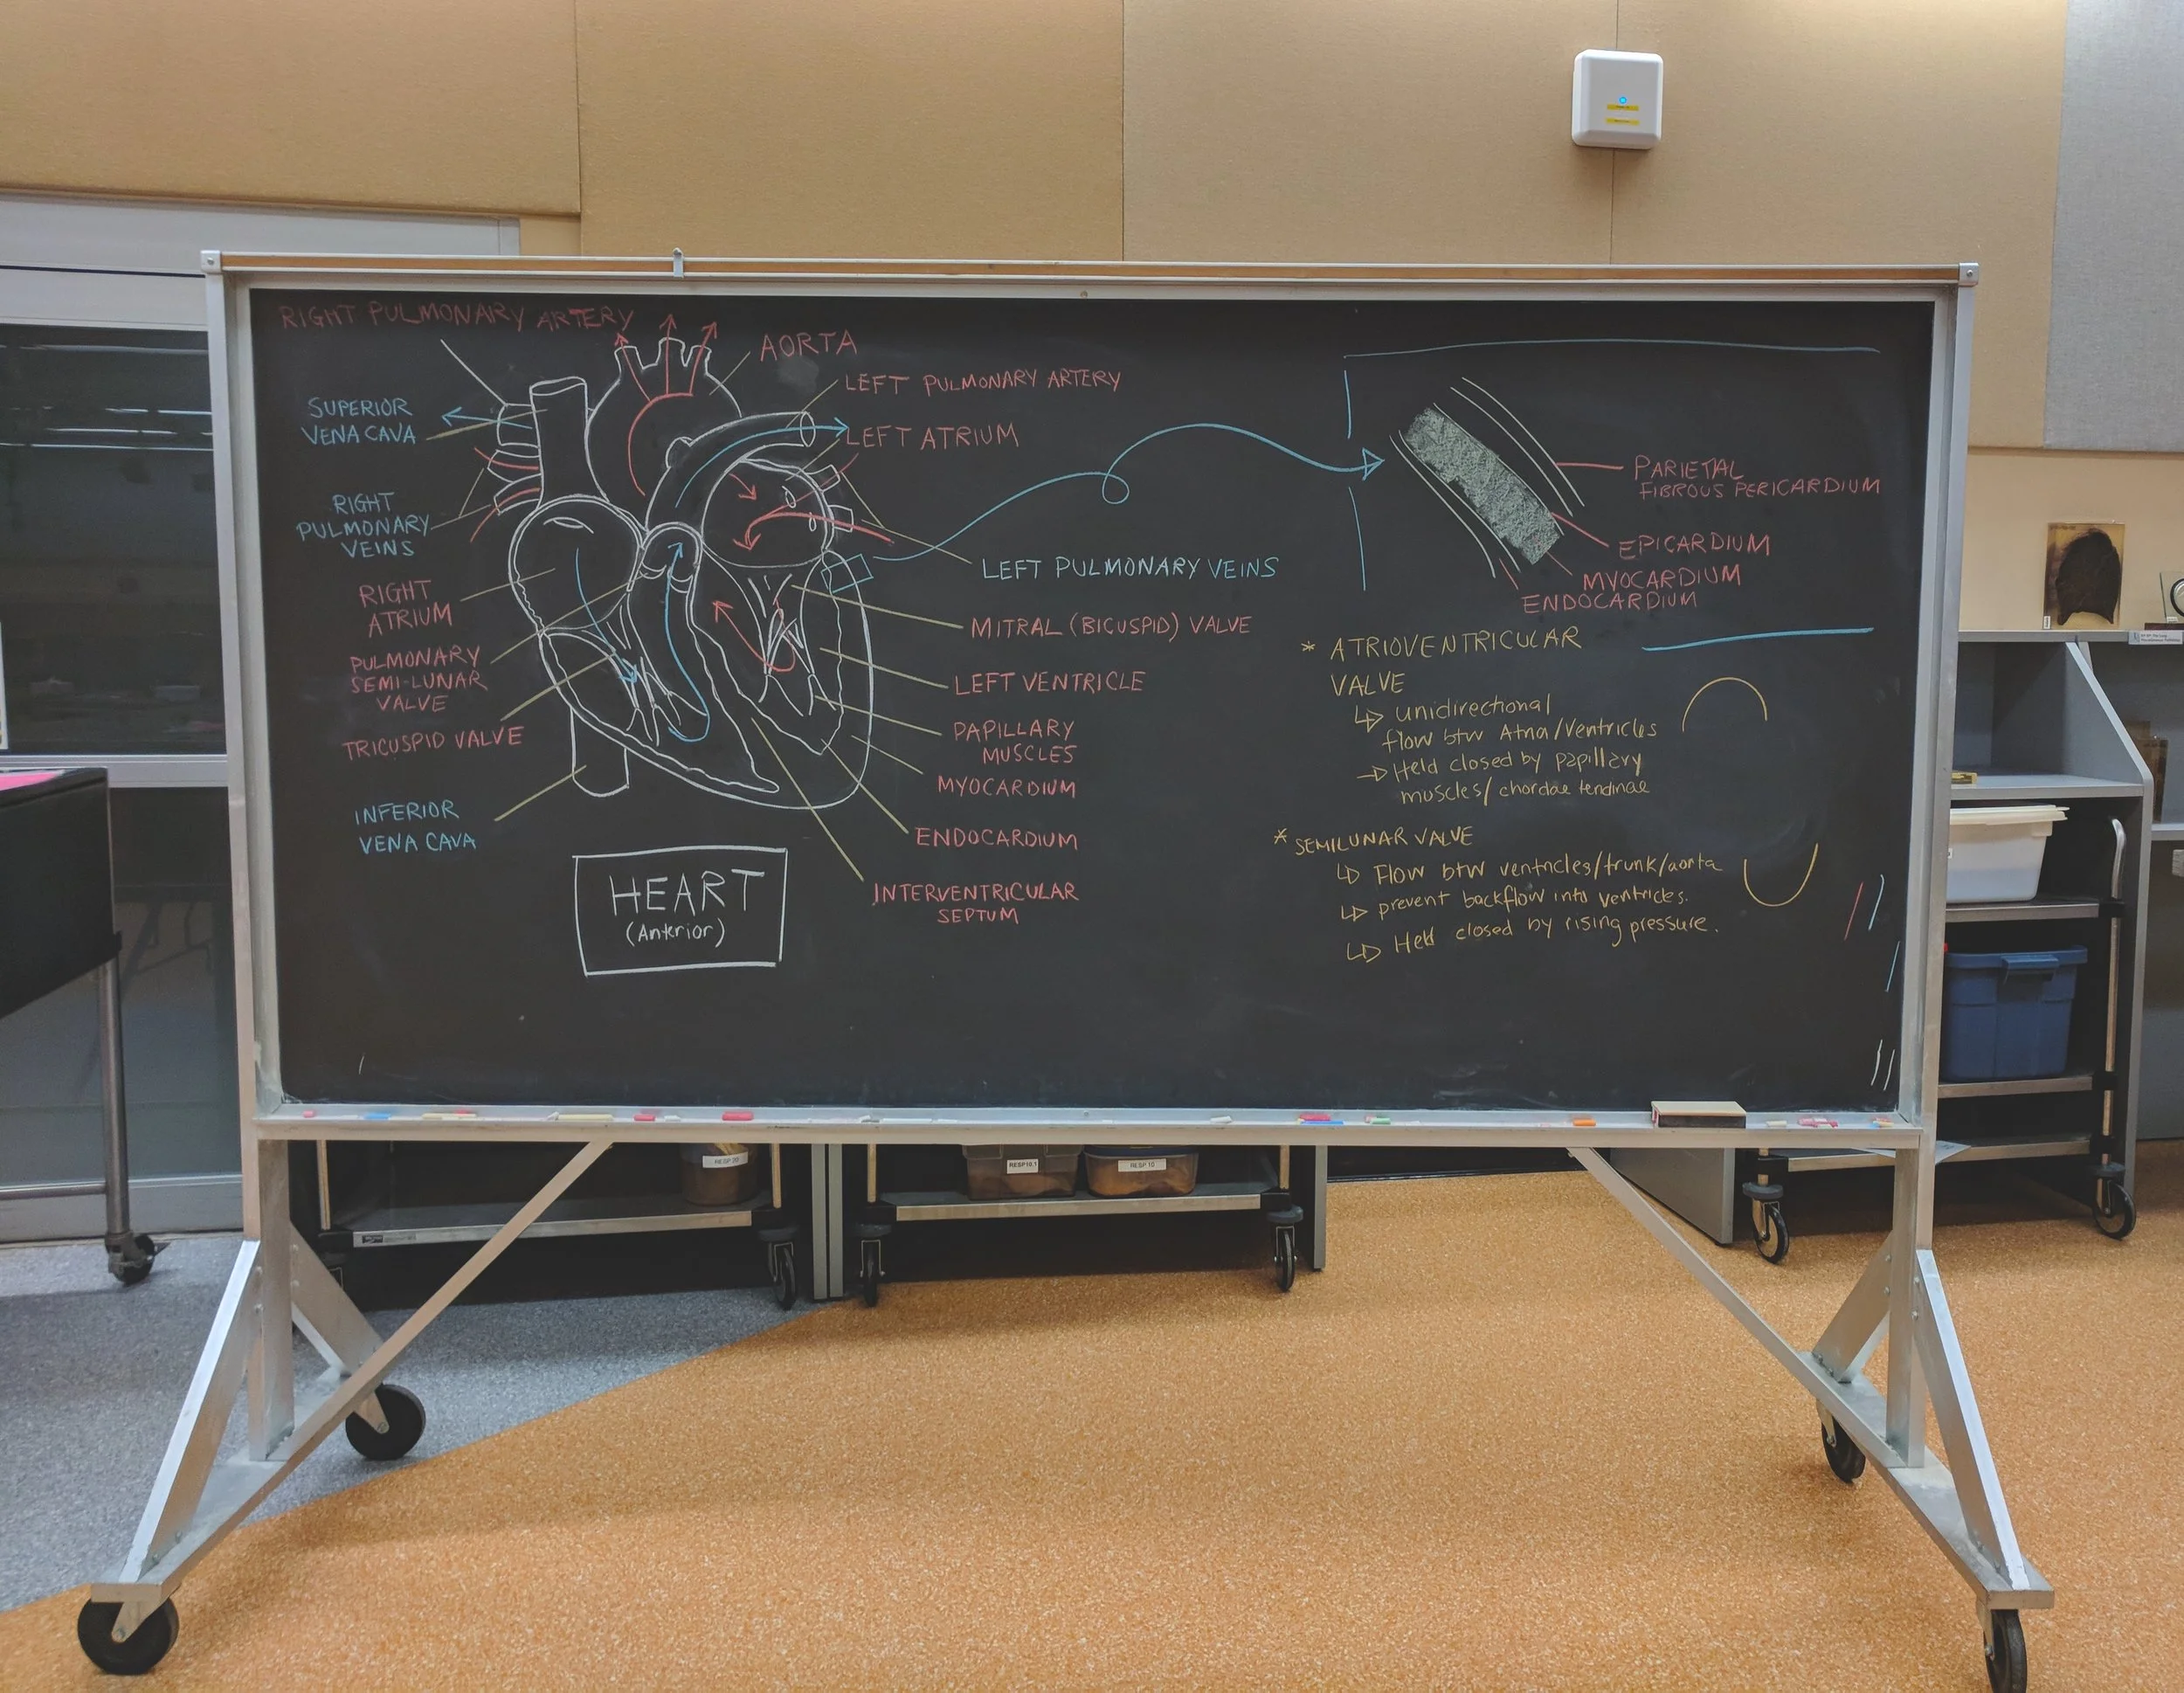 RIGHT PULMONARY ARTERY
SUPERIOR
VENA CAVA
RIGHT
PULMONARY
VEINS
RIGHT
ATRIUM
PULMONARY
SEMI-LUNAR
VALVE
TRICUSPID VALVE
INFERIOR
VENA CAVA
AORTA
LEFT PULMONARY ARTERY
LEFT ATRIUM
LEFT PULMONARY VEINS
MITRAL (BICUSPID) VALVE
LEFT VENTRICLE
PAPILLARY
MUSCLES
MYOCARDIUM
ENDOCARDIUM
INTERVENTRICULAR
SEPTUM
HEART
(Anterior)
PARIETAL
FIBROUS PERICARDIUM
EPICARDIUM
MYOCARDIUM
ENDOCARDIUM
* ATRIOVENTRICULAR
VALVE
↳ unidirectional
flow btw Atria/Ventricles
→ Held closed by papillary
muscles/chordae tendinae
* SEMILUNAR VALVE
↳ Flow btw ventricles/trunk/aorta
↳ prevent backflow into ventricles.
↳ Held closed by rising pressure.
RESP 20
RESP10.1
RESP 10